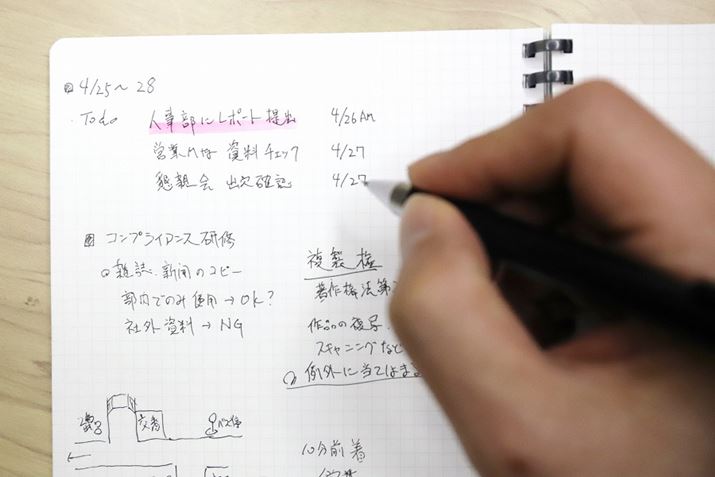 4/25～28
・Todo 人事部にレポート提出 4/26AM
営業Mtg 資料チェック 4/27
懇親会 出欠確認 4/27
コンプライアンス研修
雑誌・新聞のコピー
部内でのみ使用→OK?
社外資料→NG
複製権
著作権法第
作品の複写
スキャニングなど
例外に当てはまる
交番
バス停
10分前着